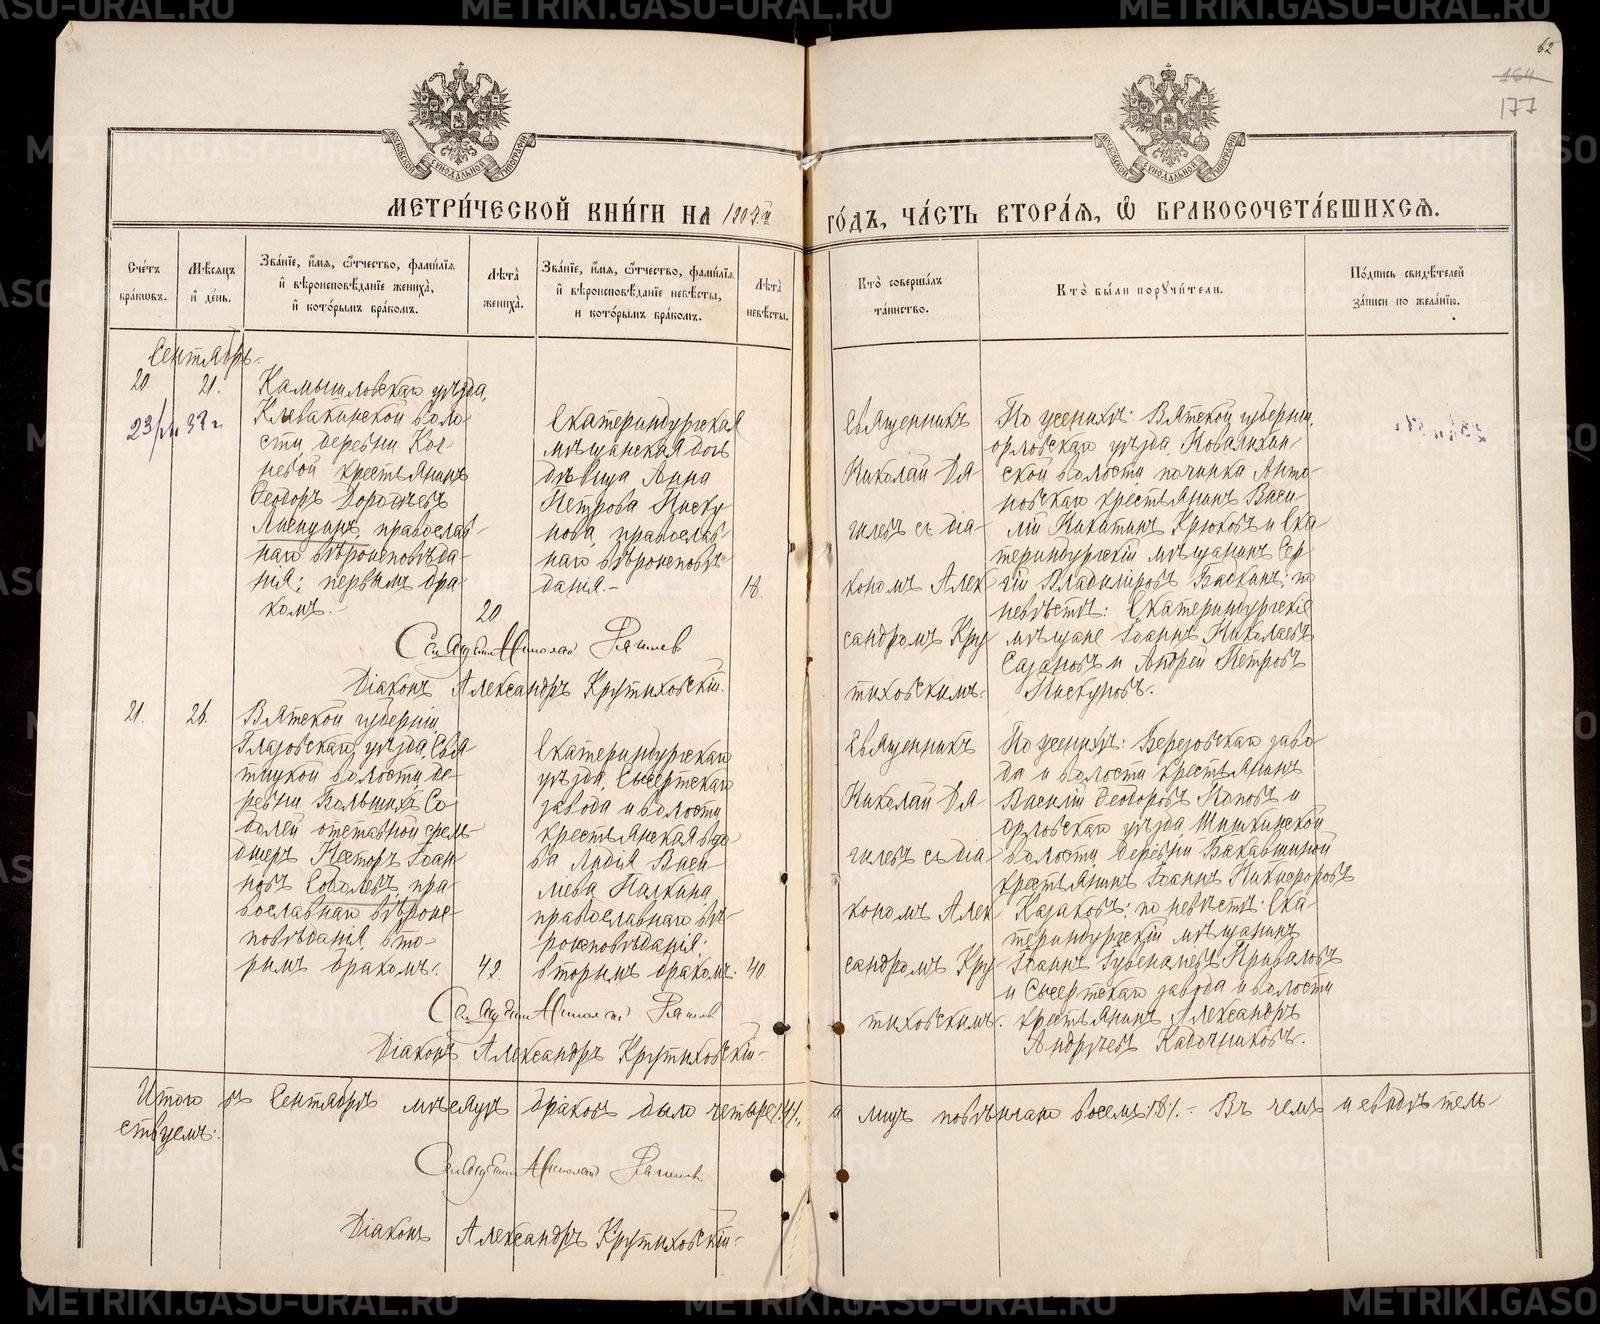 62
164
177
МОСКОВСКОЙ СѴНОДАЛЬНОЙ ТИПОГРАФІИ
МОСКОВСКОЙ СѴНОДАЛЬНОЙ ТИПОГРАФІИ
МЕТРИ́ЧЕСКОЙ КНИ́ГИ НА
ГО́ДЪ, ЧА́СТЬ ВТОРА́Я, Ѽ БРАКОСОЧЕТА́ВШИХСЯ.
Сче́тъ
бра́ковъ.
Мѣ́сяцъ
и҆ де́нь.
Зва́нїе, и҆́мя, ѻ҆́тчество, фами́лїя
и҆ вѣроисповѣ́данїе жениха̀,
и҆ кото́рымъ бра́комъ.
Лѣта̀
жениха̀.
Зва́нїе, и҆́мя, ѻ҆́тчество, фами́лїя
и҆ вѣроисповѣ́данїе невѣ́сты,
и кото́рымъ бра́комъ.
Лѣта̀
невѣ́сты.
Кто̀ соверша́лъ
та́инство.
Кто̀ бы́ли порꙋчи́тели.
По́дпись свидѣ́телей
за́писи по жела́нїю.
Сентябрь.
20
21.
Камышловскаго уѣзда,
Клевакинской воло-
сти, деревни Коч-
невой крестьянинъ
Ѳеодоръ
православ-
наго вѣроисповѣда-
нія; первымъ бра
комъ.
20
Екатеринбургская
мѣщанская дочь
дѣвица Анна
Петрова Писку
нова, православ-
наго вѣроисповѣ-
данія.-
18.
Священникъ
Николай Дя
гилевъ съ діа-
кономъ Алек
сандромъ Кру
тиховскимъ.
По женихѣ: Вятской губерніи,
орловскаго уѣзда,
ской волости, починка Анто-
новскаго крестьянинъ Васи-
лій Никитинъ Крюковъ и Ека-
теринбургскій мѣщанинъ Сер-
гій Владиміровъ Баскинъ; по
невѣстѣ: Екатеринбургскіе
мѣщане Іоаннъ Николаевъ
Сазановъ и Андрей Петровъ
Пискуновъ.
Священникъ Николай Дягилевъ
Діаконъ Александръ Крутиховскій.
21.
26.
Вятской губерніи
Глазовскаго уѣзда, Свя
тицкой волости, де-
ревни Большихъ Со-
болей отставной фель-
дшеръ Несторъ Іоан-
новъ Соболевъ, пра-
вославнаго вѣроис-
повѣданія, вто-
рымъ бракомъ.
42.
Екатеринбургскаго
уѣзда, Сысертскаго
завода и волости
крестьянская вдо-
ва Лидія Васи-
льева Палкина,
православнаго вѣ-
роисповѣданія;
вторымъ бракомъ.
40.
Священникъ
Николай Дя-
гилевъ съ діа-
кономъ Алек
сандромъ Кру-
тиховскимъ.
По женихѣ: Березовскаго заво-
да и волости крестьянинъ
Василій Ѳеодоровъ Поповъ и
Орловскаго уѣзда,
волости, деревни
крестьянинъ Іоаннъ Никифоровъ
Казаковъ; по невѣстѣ: Ека-
теринбургскій мѣщанинъ
Іоаннъ Приваловъ
и Сысертскаго завода и волости
крестьянинъ Александръ
Андреевъ Кадочниковъ.
Священникъ Николай Дягилевъ
Діаконъ Александръ Крутиховскій.
Итого въ Сентябрѣ мѣсяцѣ браковъ было четыре /4/, а лицъ повѣнчано восемь /8/. - Въ чемъ и свидѣтель-
ствуемъ:
Священникъ Николай Дягилевъ
Діаконъ Александръ Крутиховскій.
METRIKI.GASO-URAL.RU